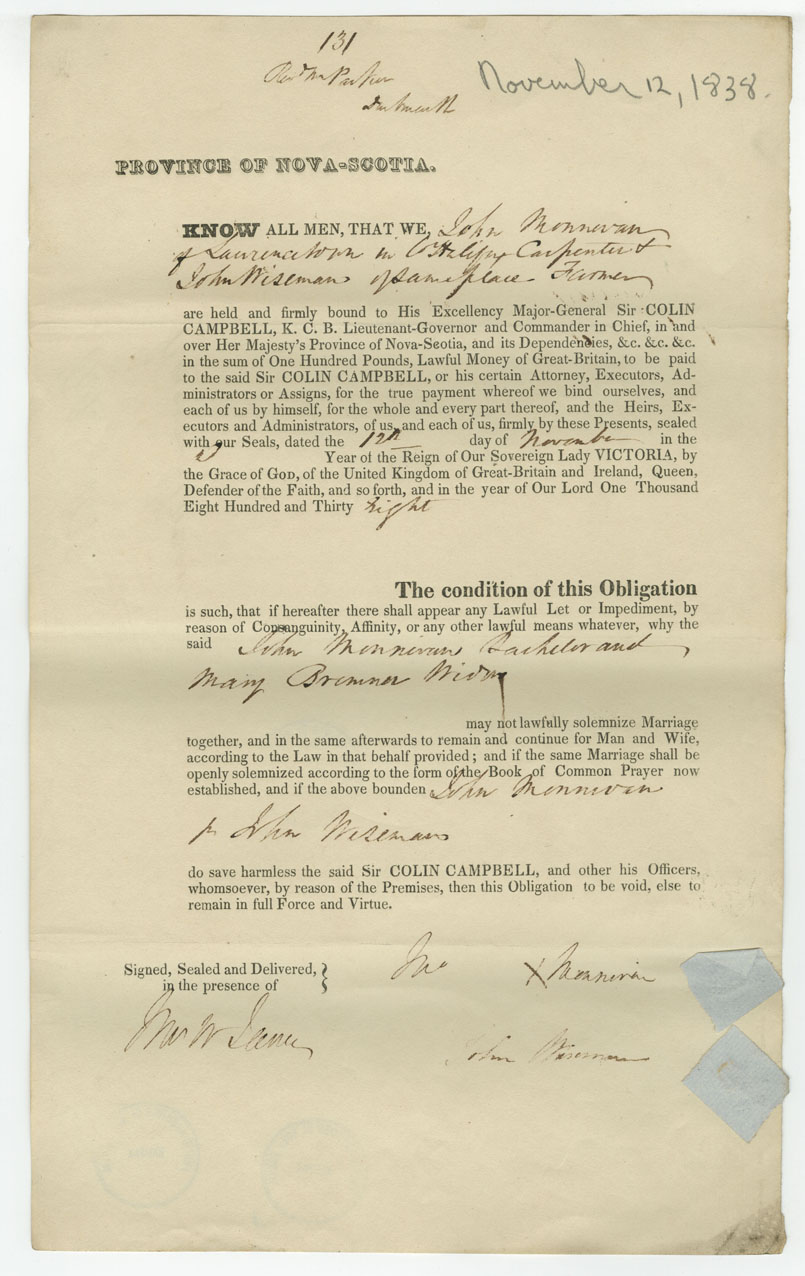 131
Revd Mr Parker
Dartmouth
November 12, 1838.
PROVINCE OF NOVA-SCOTIA.
KNOW ALL MEN, THAT WE, John Monnevan
of Lawrencetown in Co Halifax Carpenter &
John Wiseman of same place Farmer
are held and firmly bound to His Excellency Major-General Sir COLIN
CAMPBELL, K. C. B. Lieutenant-Governor and Commander in Chief, in and
over Her Majesty's Province of Nova-Scotia, and its Dependencies, &c. &c. &c.
in the sum of One Hundred Pounds, Lawful Money of Great-Britain, to be paid
to the said Sir COLIN CAMPBELL, or his certain Attorney, Executors, Ad-
ministrators or Assigns, for the true payment whereof we bind ourselves, and
each of us by himself, for the whole and every part thereof, and the Heirs, Ex-
ecutors and Administrators, of us, and each of us, firmly by these Presents, sealed
with our Seals, dated the 12th day of November in the
Year of the Reign of Our Sovereign Lady VICTORIA, by
the Grace of GOD, of the United Kingdom of Great-Britain and Ireland, Queen,
Defender of the Faith, and so forth, and in the year of Our Lord One Thousand
Eight Hundred and Thirty Eight
The condition of this Obligation
is such, that if hereafter there shall appear any Lawful Let or Impediment, by
reason of Consanguinity, Affinity, or any other lawful means whatever, why the
said John Monnevan Bachelor and
Mary Bremner Widow
may not lawfully solemnize Marriage
together, and in the same afterwards to remain and continue for Man and Wife,
according to the Law in that behalf provided; and if the same Marriage shall be
openly solemnized according to the form of the Book of Common Prayer now
established, and if the above bounden John Monnevan
& John Wiseman
do save harmless the said Sir COLIN CAMPBELL, and other his Officers,
whomsoever, by reason of the Premises, then this Obligation to be void, else to
remain in full Force and Virtue.
Signed, Sealed and Delivered,
in the presence of
Jno X Monnevan
John Wiseman